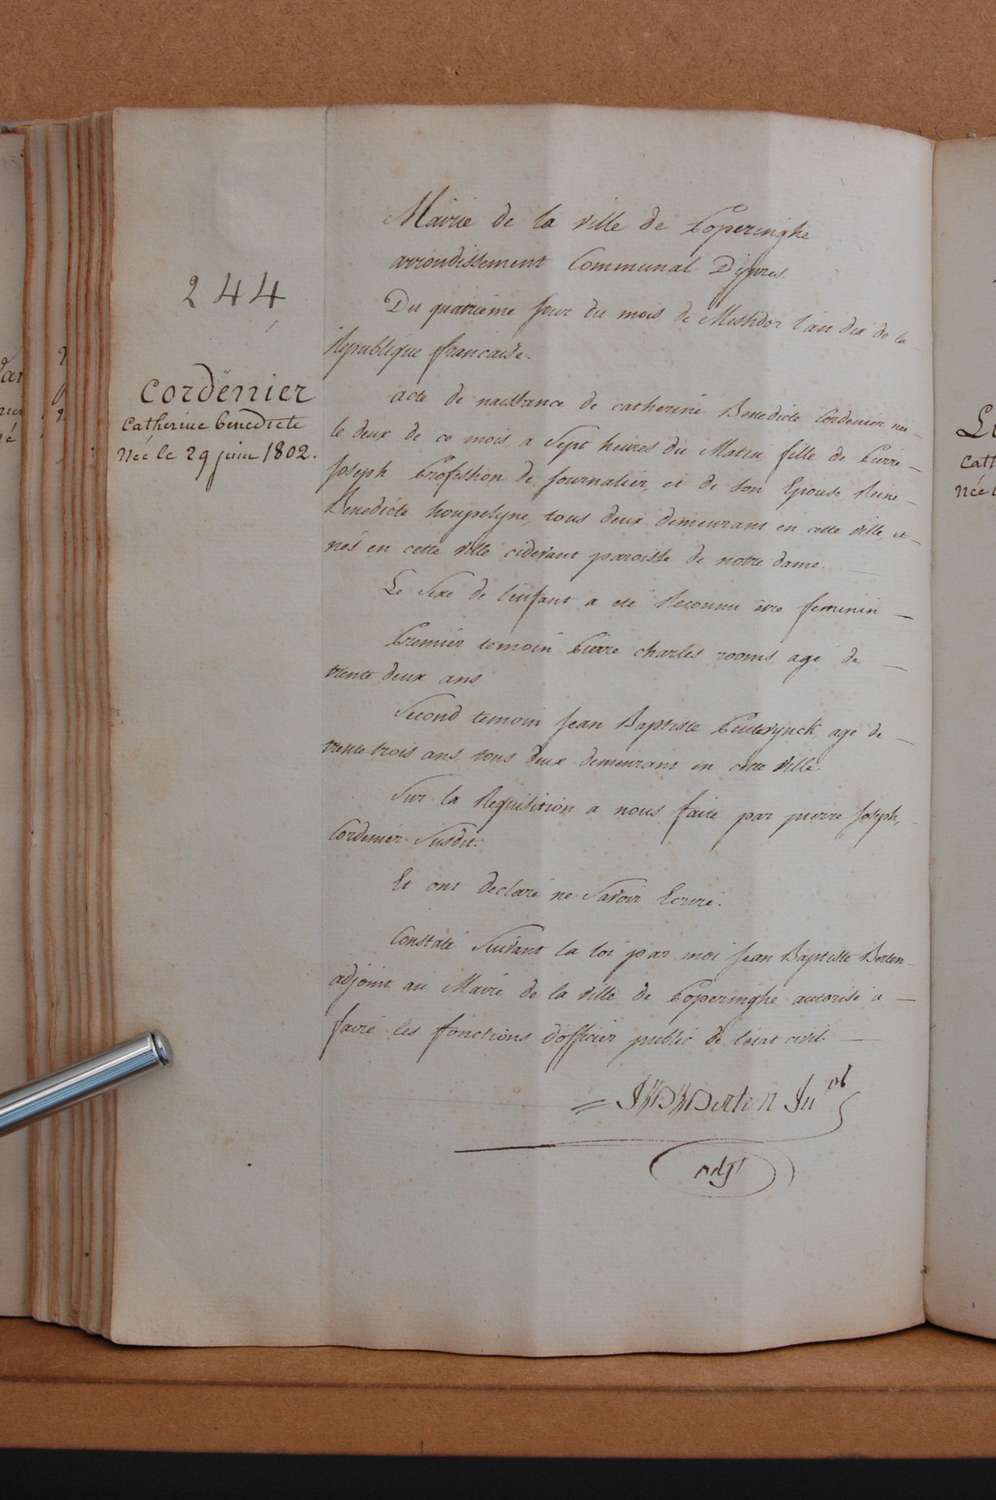 244
Cordënier
Catherine benedicte
Née le 29 juin 1802.
Mairie de la ville de Poperinghe
arrondissement Communal D'ypres.
Du quatrieme jour du mois de Messidor l'an dix de la
République francaise.
acte de naissance de catherine Benedicte Cordenier née
le deux de ce mois a Sept heures du Matin fille de Pierre
Joseph Profession de Journalier, et de Son Epouse Reine
Benedicte houpelyne, tous deux demeurant en cette ville, et
nés en cette ville cidevant paroisse de notre dame.
Le Sexe de l'enfant a eté Reconnu être feminin
Premier temoin Pierre charles rooms agé de
trente deux ans
Second temoin Jean Baptiste agé de
trente trois ans tous deux demeurant en cette ville.
Sur la Requisition a nous faite par pierre Joseph,
Cordenier Susdit.
Et ont declaré ne Savoir Ecrire.
Constaté Suivant la loi par moi Jean Baptiste Berten
adjoint au Maire de la ville de Poperinghe autorisé a
faire les fonctions d'officier public de l'etat civil.
J B Berten
adjt